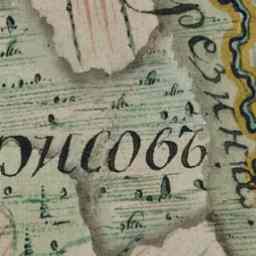 рисовъ
резина